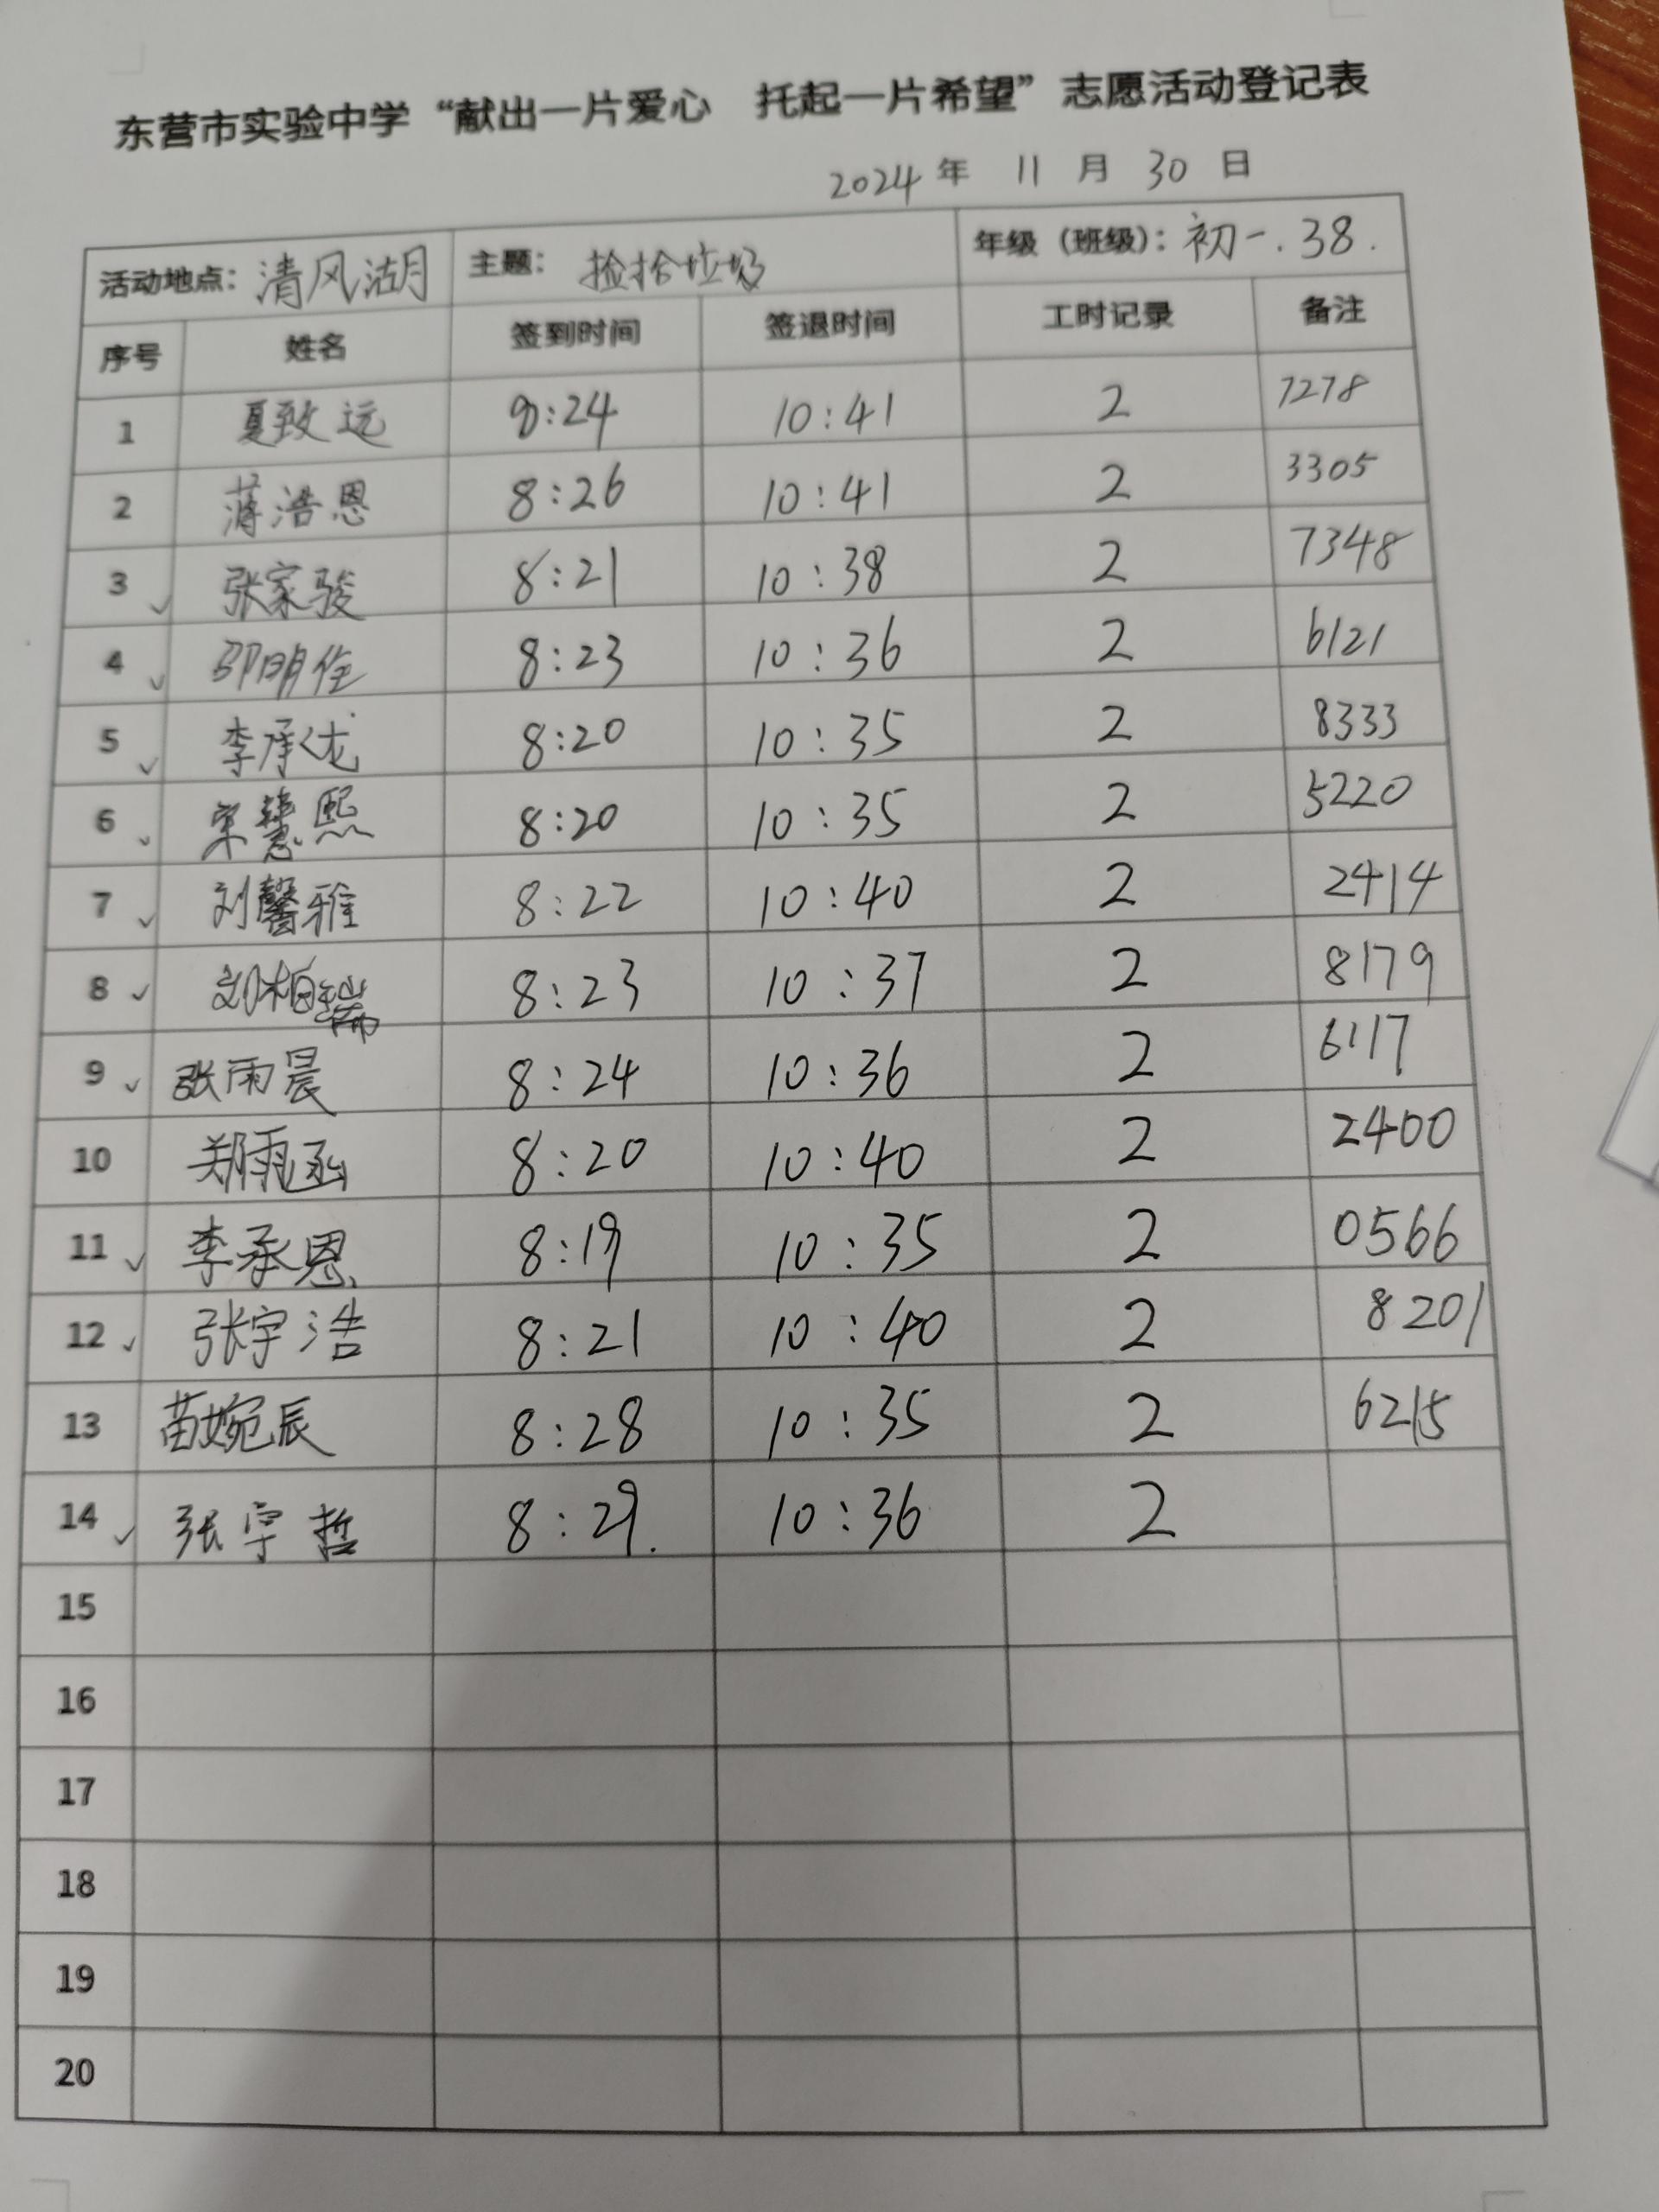 东营市实验中学“献出一片爱心 托起一片希望”志愿活动登记表
2024年 11 月 30 日
活动地点：清风湖 主题： 捡拾垃圾 年级（班级）：初一.38.
序号 姓名 签到时间 签退时间 工时记录 备注
1 夏致远 8:24 10:41 2 7278
2 蒋浩恩 8:26 10:41 2 3305
3 ✓ 张家骏 8:21 10:38 2 7348
4 ✓ 邵明佳 8:23 10:36 2 6121
5 ✓ 李承龙 8:20 10:35 2 8333
6 ✓ 宋慧熙 8:20 10:35 2 5220
7 ✓ 刘馨雅 8:22 10:40 2 2414
8 ✓ 刘柏瑞 8:23 10:37 2 8179
9 ✓ 张雨晨 8:24 10:36 2 6117
10 郑雨函 8:20 10:40 2 2400
11 ✓ 李承恩 8:19 10:35 2 0566
12 ✓ 张宇浩 8:21 10:40 2 8201
13 苗婉辰 8:28 10:35 2 6215
14 ✓ 张宇哲 8:29. 10:36 2
15
16
17
18
19
20